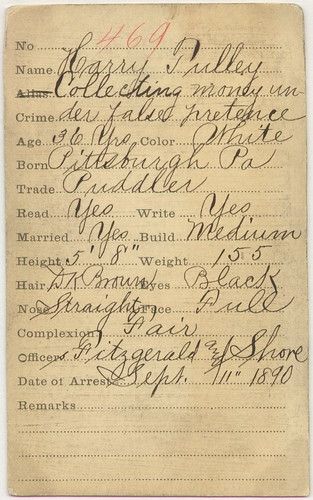 No 469
Name Harry Pulley
Alias Collecting money un-
Crime der false pretence
Age 36 Yrs Color White
Born Pittsburgh Pa
Trade Puddler
Read Yes Write Yes
Married Yes Build Medium
Height 5' 8" Weight 155
Hair DK Brown Eyes Black
Nose Straight Face Full
Complexion Fair
Officers Fitzgerald and Shore
Date of Arrest Sept. 11" 1890
Remarks